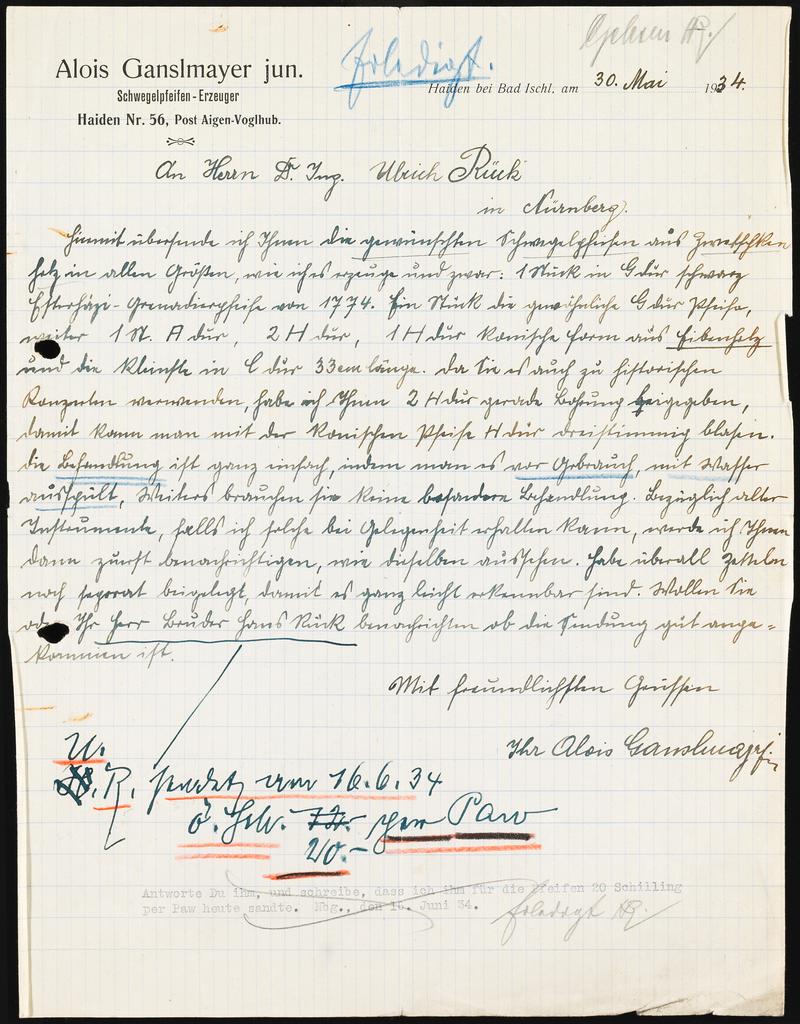 Gesehen HR./
Erledigt.
Alois Ganslmayer jun.
Schwegelpfeifen-Erzeuger
Haiden Nr. 56, Post Aigen-Voglhub.
Haiden bei Bad Ischl, am 30. Mai 1934.
An Herrn Dr. Ing. Ulrich Rück
in Nürnberg.
Hiermit übersende ich Ihnen die gewünschten Schwegelpfeifen aus Zwetschken
holz in allen Größen, wie ich es erzeuge und zwar: 1 Stück in G dur schwarz
Esterházi-Grenadierpfeife von 1774. Ein Stück die gewöhnliche G dur Pfeife,
weiter 1 St. A dur, 2 H dur, 1 H dur konische form aus Eibenholz
und die kleinste in C dur 33 cm länge. Da Sie es auch zu historischen
Konzerten verwenden, habe ich Ihnen 2 H dur gerade Bohrung beigegeben,
damit kann man mit der konischen Pfeife H dur dreistimmig blasen.
die Behandlung ist ganz einfach, indem man es vor Gebrauch, mit Wasser
ausspült, Weiters brauchen sie keine besondere Behandlung. Bezüglich alter
Instrumente, falls ich solche bei Gelegenheit erhalten kann, werde ich Ihnen
dann zuerst benachrichtigen, wie dieselben aussehen. Habe überall Zetteln
noch seperat beigelegt, damit es ganz leicht erkennbar sind. Wollen Sie
oder Ihr Herr Bruder Hans Rück benachrichten ob die Sendung gut ange=
kommen ist.
Mit freundlichsten Grüssen
Ihr Alois Ganslmayr jn.
U.
R. sendet am 16.6.34
ö. Sch. per Paw
20.-
Antworte Du ihm, und schreibe, dass ich ihm für die Pfeifen 20 Schilling
per Paw heute sandte. Nbg., den 16. Juni 34.
Erledigt HR./